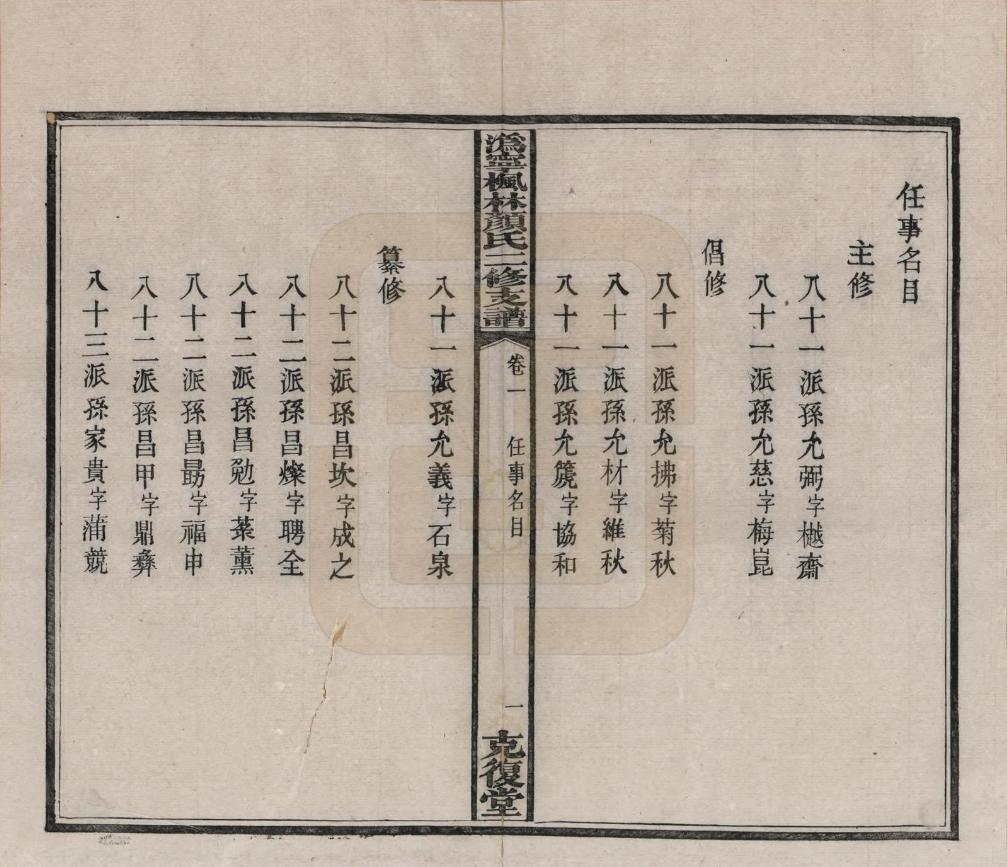 任事名目
主修
八十一派孫允弼字樾齋
八十一派孫允慈字梅崑
倡修
八十一派孫允拂字菊秋
八十一派孫允材字維秋
八十一派孫允箎字協和
溈寧楓林顏氏二修支譜 卷一 任事名目 一 克復堂
八十一派孫允義字石泉
纂修
八十二派孫昌坎字成之
八十二派孫昌燦字聘全
八十二派孫昌勉字棻薰
八十二派孫昌勗字福申
八十二派孫昌甲字鼎彝
八十三派孫家貴字蒲競